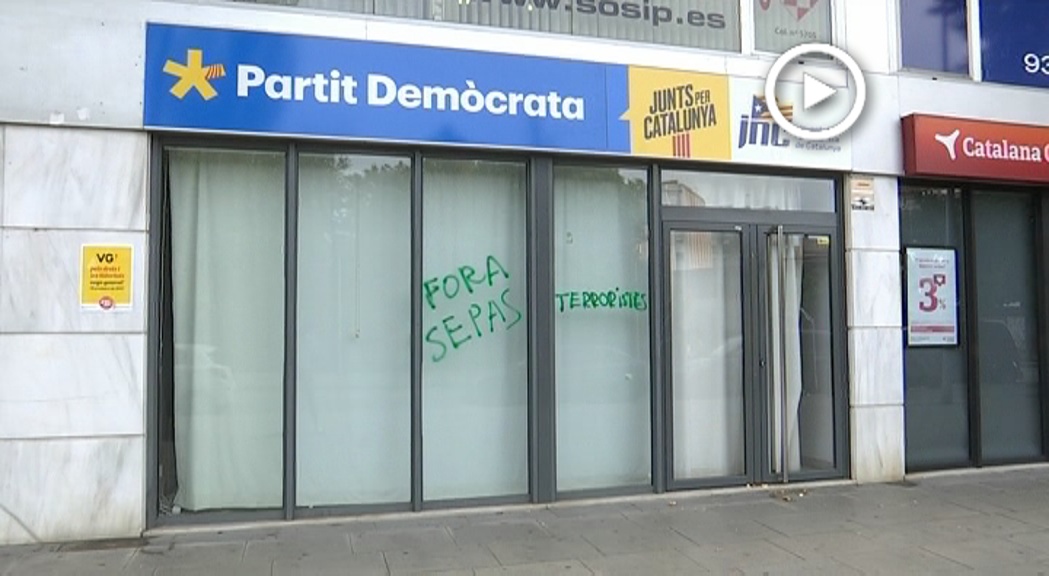 www.sosip.es
Partit Demòcrata
JUNTS PER
CATALUNYA
jnc
de Catalunya
93
Catalana
VG!
FORA
SEPAS
TERRORISTES
3%